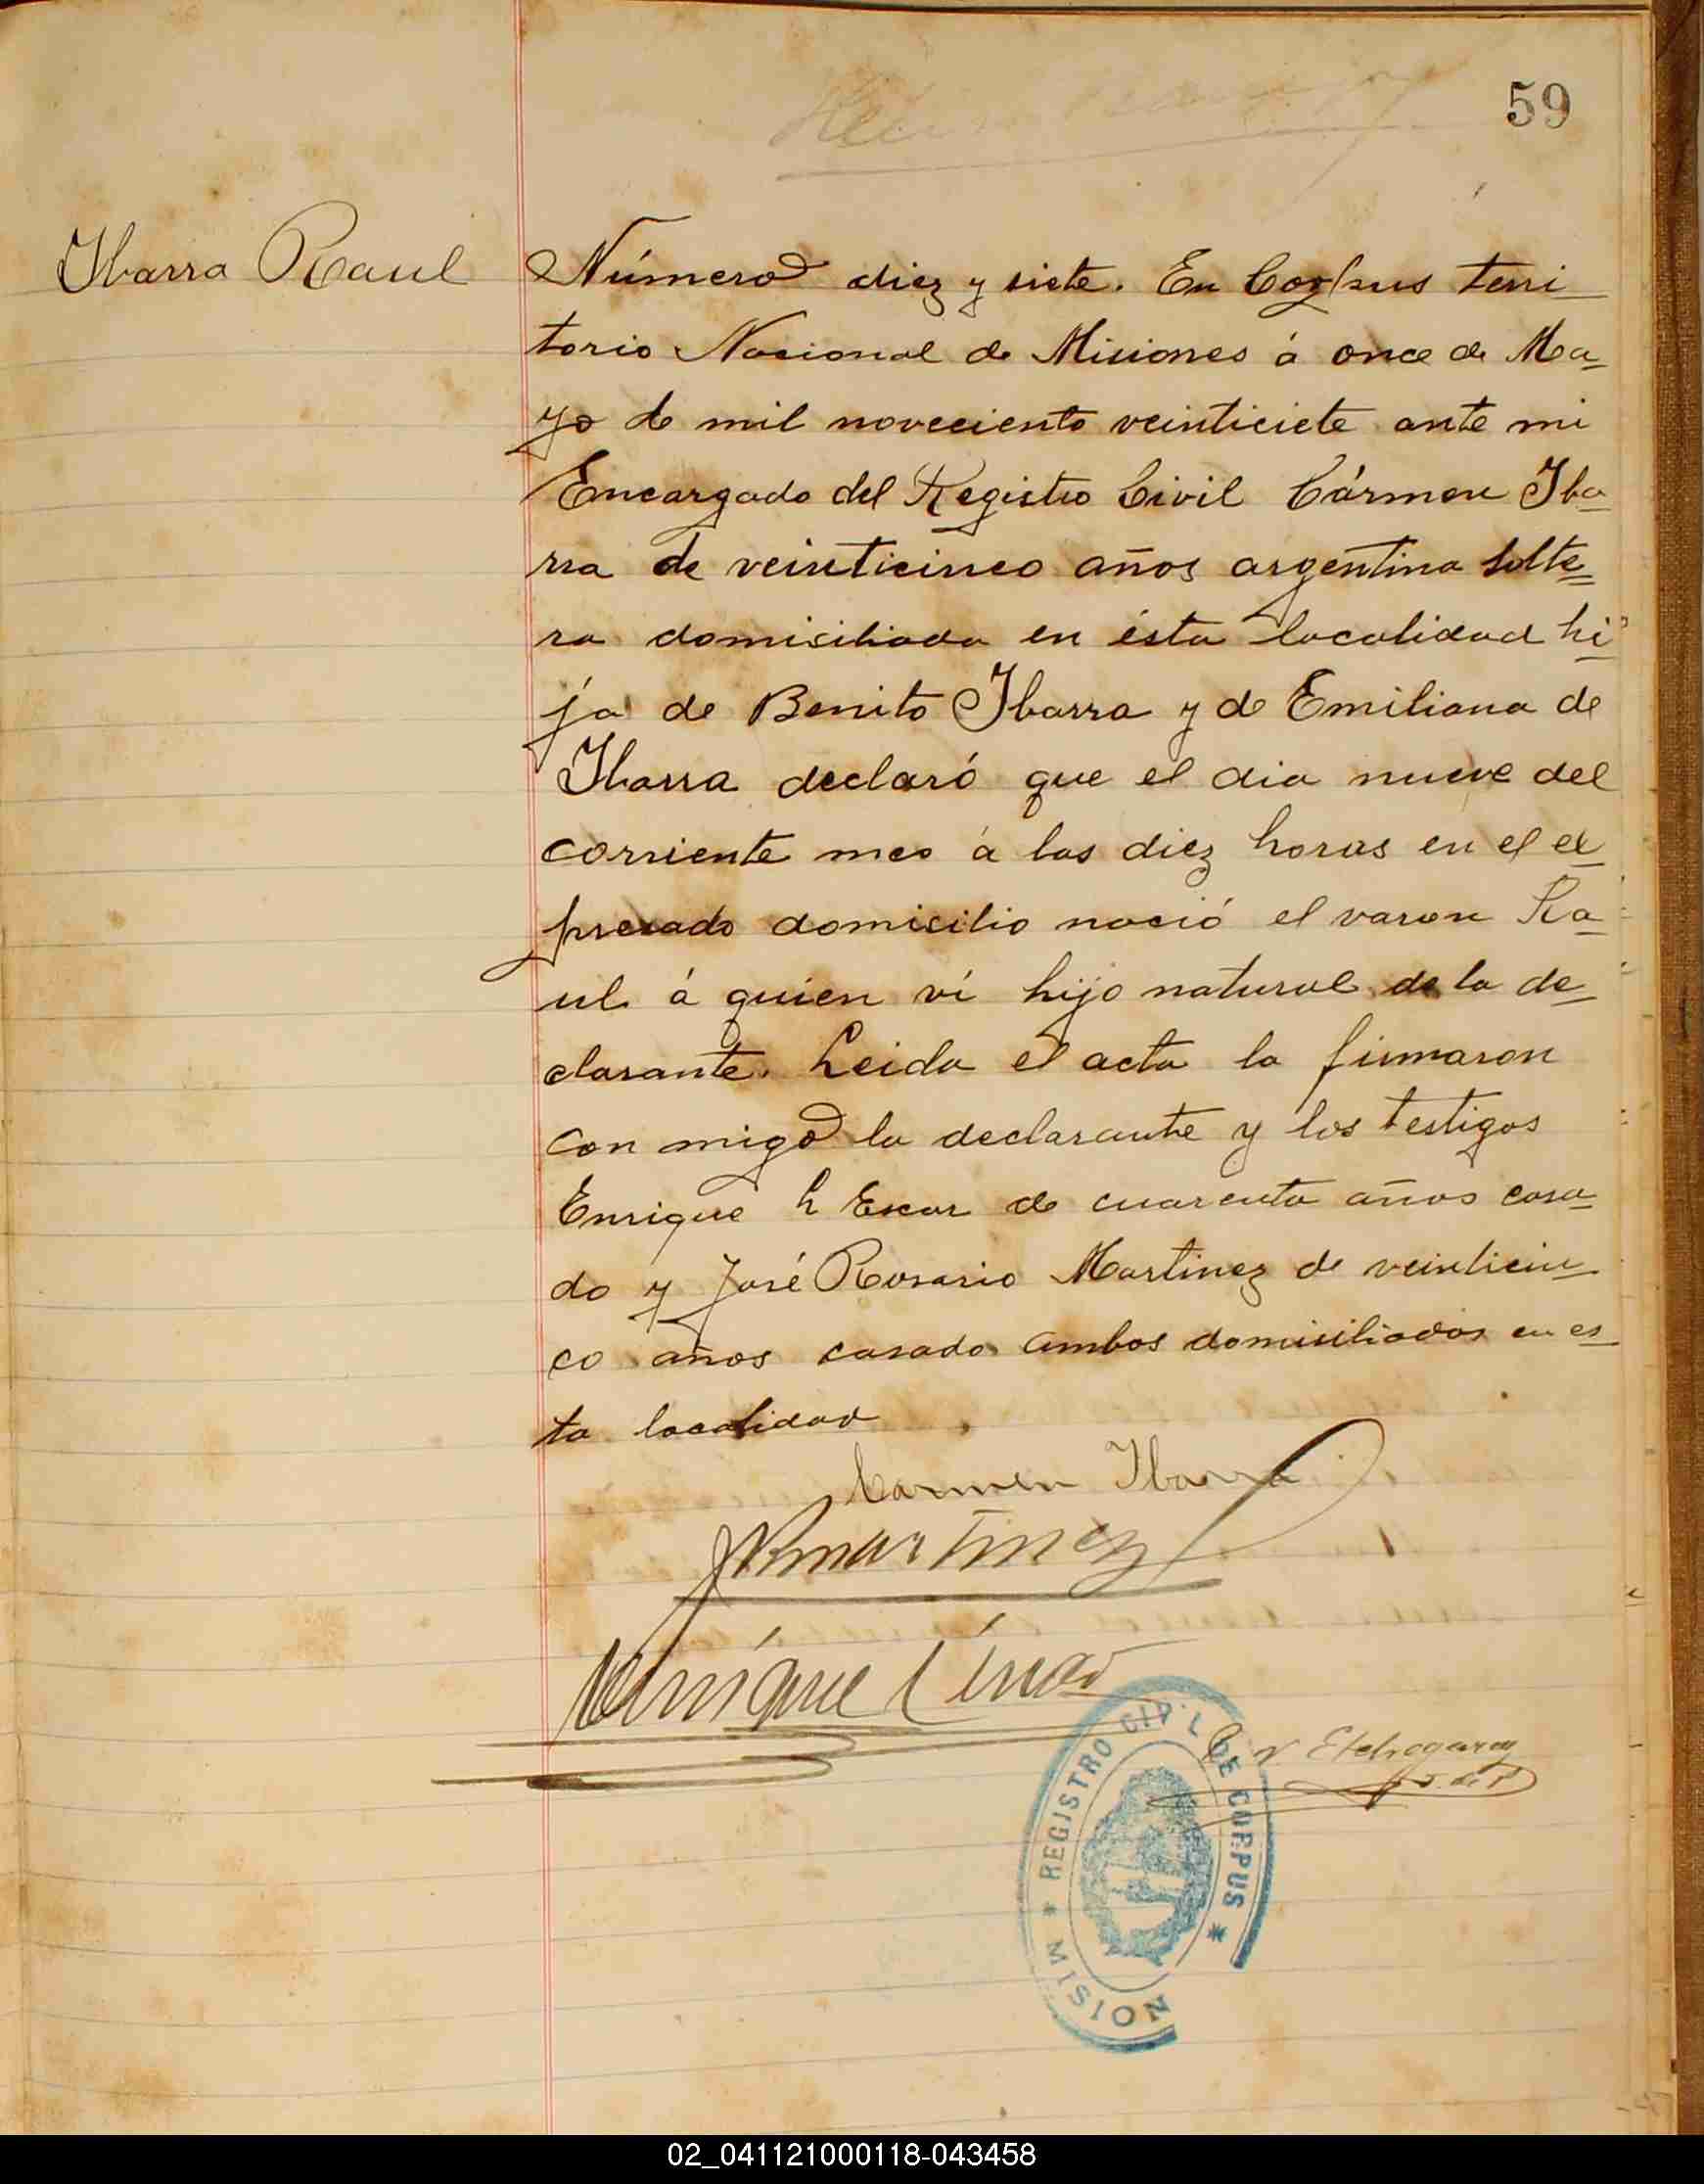 59
Ibarra Raul
Número diez y siete. En Corpus terri
torio Nacional de Misiones á once de Ma-
yo de mil noveciento veinticiete ante mi
Encargado del Registro Civil Cármen Iba
rra de veinticinco años argentina solte-
ra domisiliada en ésta localidad hi-
ja de Benito Ibarra y de Emiliana de
Ibarra declaró que el dia nueve del
corriente mes á las diez horas en el ex
presado domicilio nació el varon Ra-
ul á quien ví hijo natural de la de-
clarante. Leida el acta la firmaron
con migo la declarante y los testigos
Enrique L Escar de cuarenta años casa-
do y José Rosario Martinez de veinticin-
co años casado ambos domisiliados en es-
ta localidad
Carmen Ibarra
JRMartinez
Enrique L
Etchegaray
REGISTRO CIVIL DE CORPUS * MISION *
02_041121000118-043458